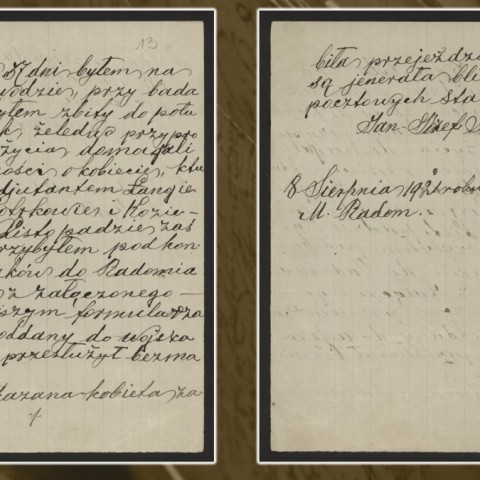 13
87 dni byłem na
wodzie, przy bada
byłem zbity do połu
k, żeledwo przypro
życia, domagali
ości o kobiecie, któ
djutantem Langie
otrkowie i Kozie-
Listopadzie zaś
rzybyłem pod kon
ków do Radomia
z załączonego
szym formularza
oddany do wojska
przesłużył bezma
kazana kobieta za-
biła przejeżdża
są jenerała bli
pocztowych sta
Jan Józef
8 Sierpnia 1921 robu
M. Radom.